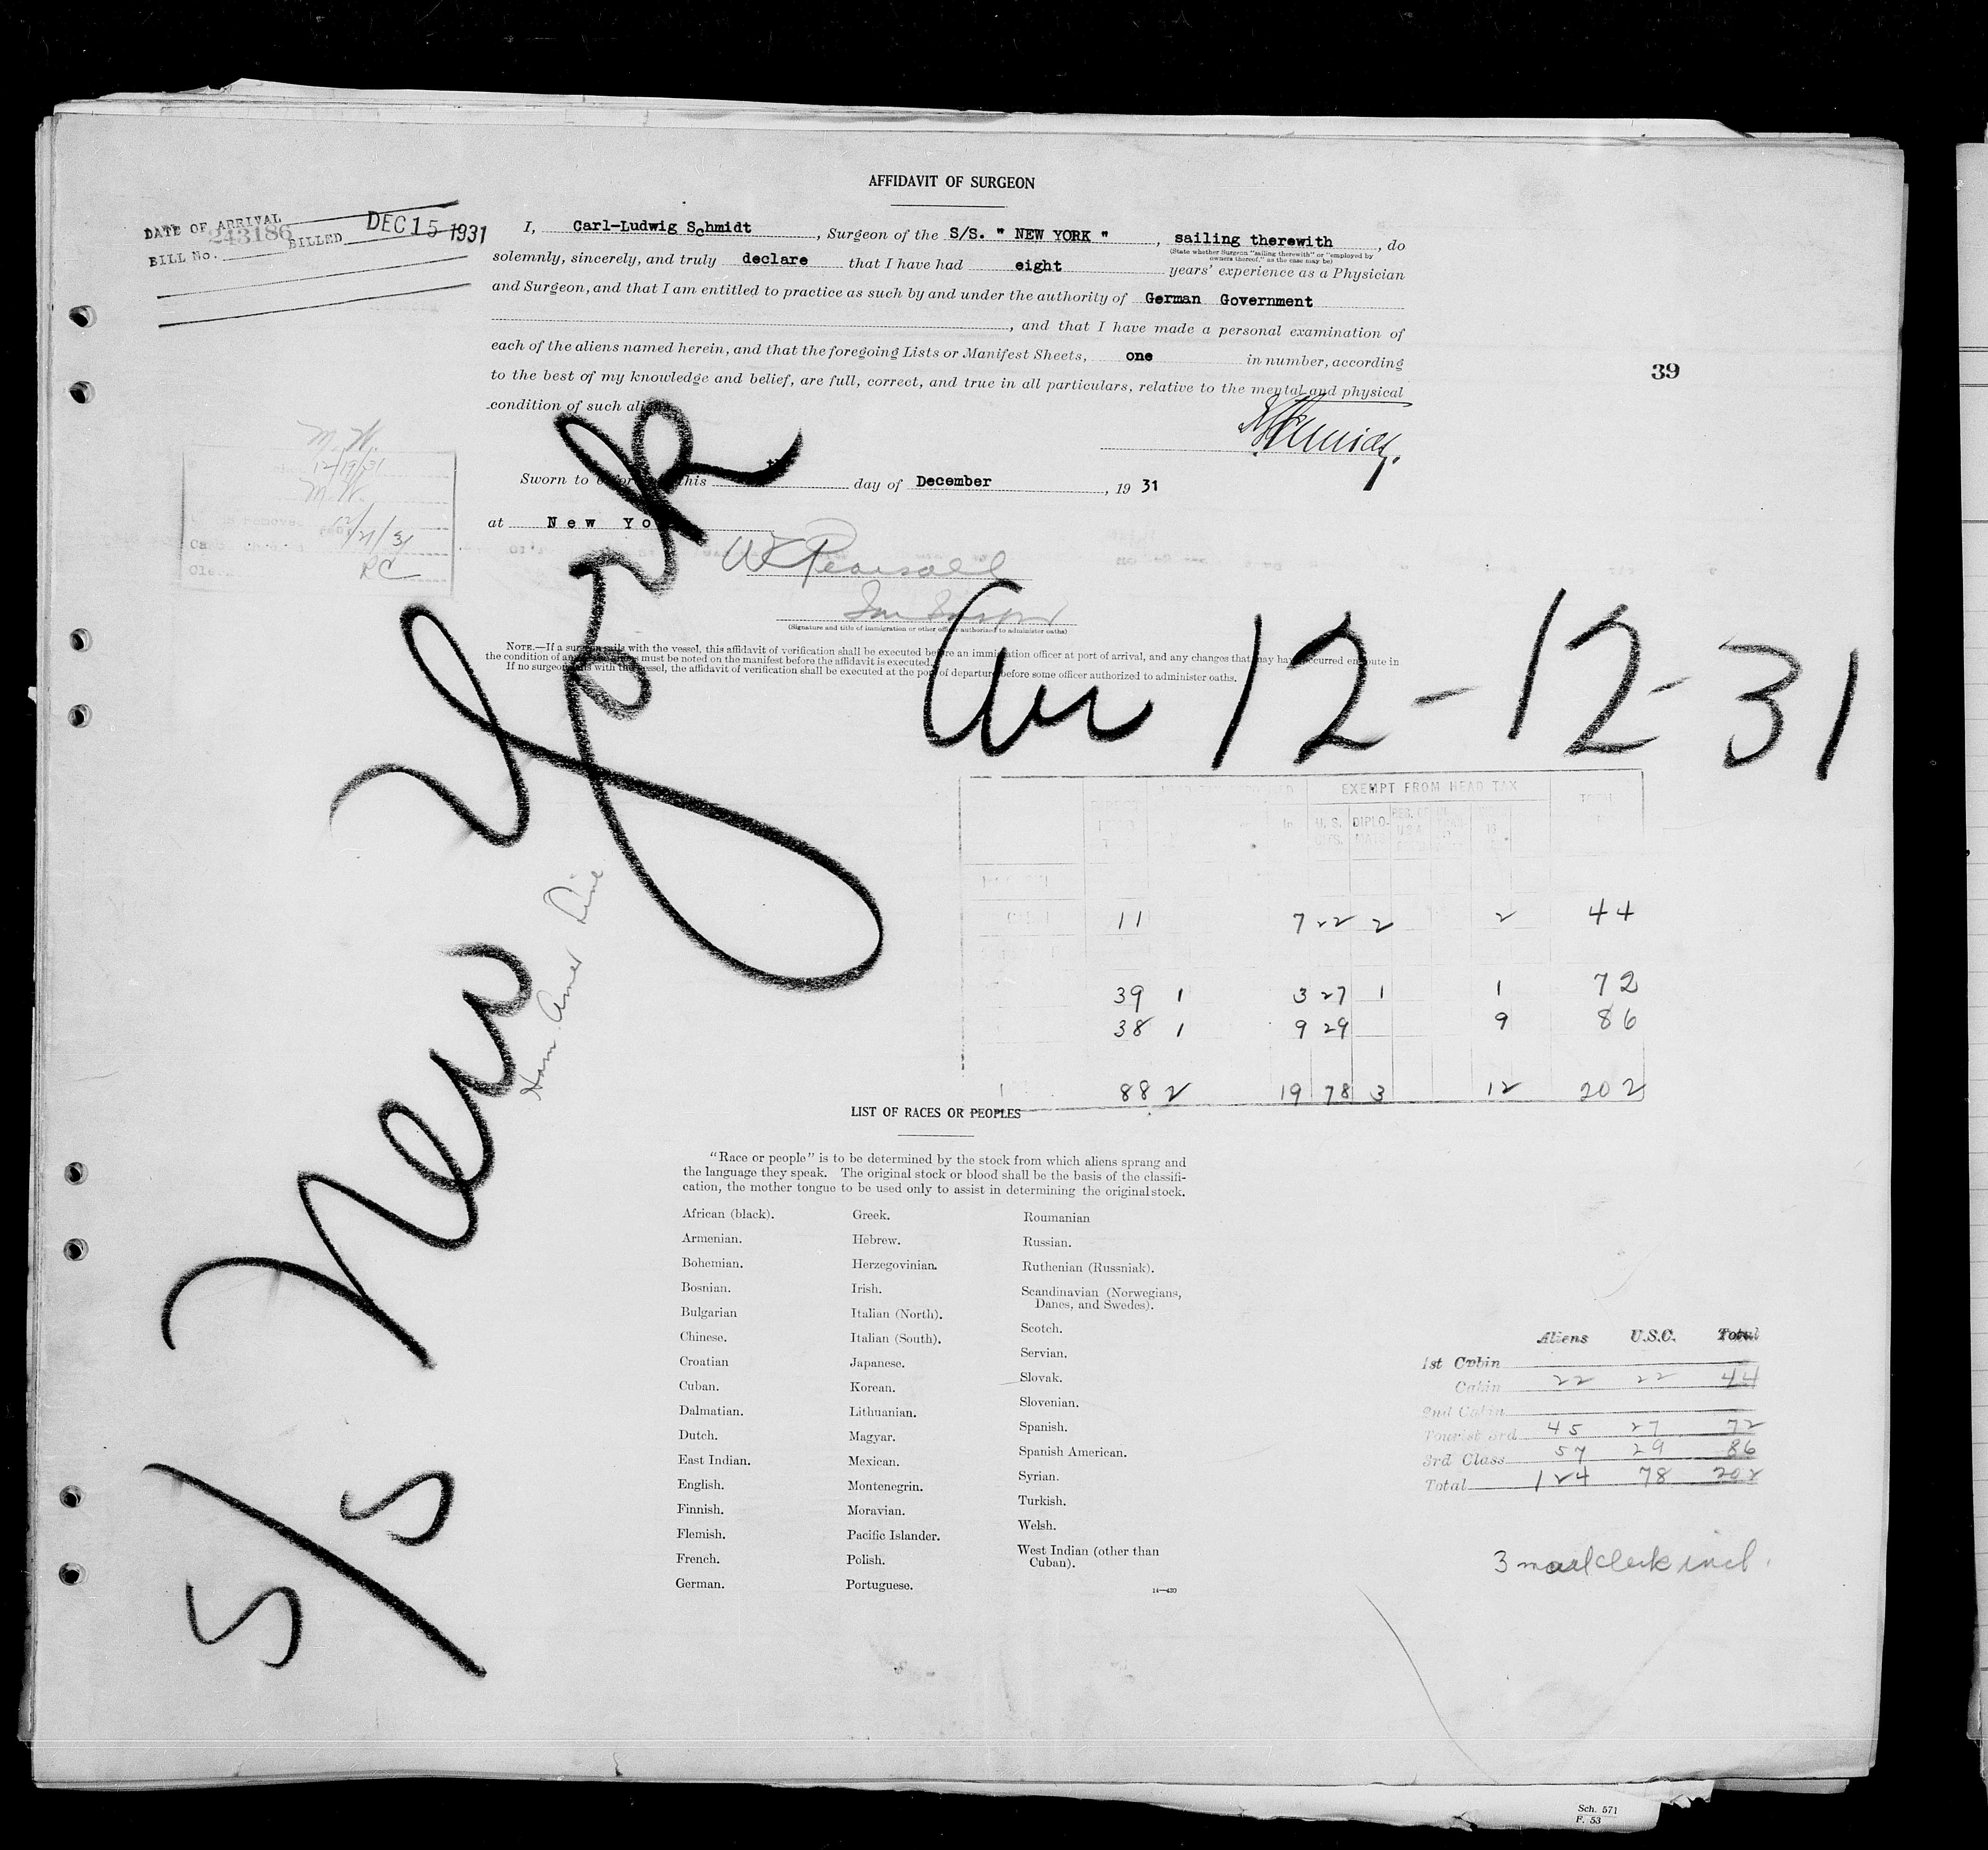 AFFIDAVIT OF SURGEON
DATE OF ARRIVAL
DEC 15 1931
243186
BILLED
BILL No.
I, Carl-Ludwig Schmidt, Surgeon of the S/S. " NEW YORK ", sailing therewith, do
(State whether Surgeon "sailing therewith" or "employed by
owners thereof," as the case may be)
solemnly, sincerely, and truly declare that I have had eight years' experience as a Physician
and Surgeon, and that I am entitled to practice as such by and under the authority of German Government
, and that I have made a personal examination of
each of the aliens named herein, and that the foregoing Lists or Manifest Sheets, one in number, according
to the best of my knowledge and belief, are full, correct, and true in all particulars, relative to the mental and physical
condition of such
39
M. W.
12/19/31
M. W.
12/21/31
RC
Sworn to this th day of December, 19 31
at New York
W Pearsall
(Signature and title of immigration or other officer authorized to administer oaths)
NOTE.—If a surgeon sails with the vessel, this affidavit of verification shall be executed before an immigration officer at port of arrival, and any changes that may have occurred en route in
the condition of must be noted on the manifest before the affidavit is executed.
If no surgeon sails with the vessel, the affidavit of verification shall be executed at the port of departure before some officer authorized to administer oaths.
S/S New York
Ham. Amer Line
Arr 12-12-31
EXEMPT FROM HEAD TAX
U. S. DIPLO-
11 7 22 2 2 44
39 1 3 27 1 1 72
38 1 9 29 9 86
88 2 19 78 3 12 202
LIST OF RACES OR PEOPLES
"Race or people" is to be determined by the stock from which aliens sprang and
the language they speak. The original stock or blood shall be the basis of the classifi-
cation, the mother tongue to be used only to assist in determining the original stock.
African (black).
Armenian.
Bohemian.
Bosnian.
Bulgarian
Chinese.
Croatian
Cuban.
Dalmatian.
Dutch.
East Indian.
English.
Finnish.
Flemish.
French.
German.
Greek.
Hebrew.
Herzegovinian.
Irish.
Italian (North).
Italian (South).
Japanese.
Korean.
Lithuanian.
Magyar.
Mexican.
Montenegrin.
Moravian.
Pacific Islander.
Polish.
Portuguese.
Roumanian
Russian.
Ruthenian (Russniak).
Scandinavian (Norwegians,
Danes, and Swedes).
Scotch.
Servian.
Slovak.
Slovenian.
Spanish.
Spanish American.
Syrian.
Turkish.
Welsh.
West Indian (other than
Cuban).
14—439
Aliens U.S.C. Total
1st Cabin
Cabin 22 22 44
2nd Cabin
Tourist 3rd 45 27 72
3rd Class 57 29 86
Total 124 78 202
3 mail clerk incl.
Sch. 571
F. 53